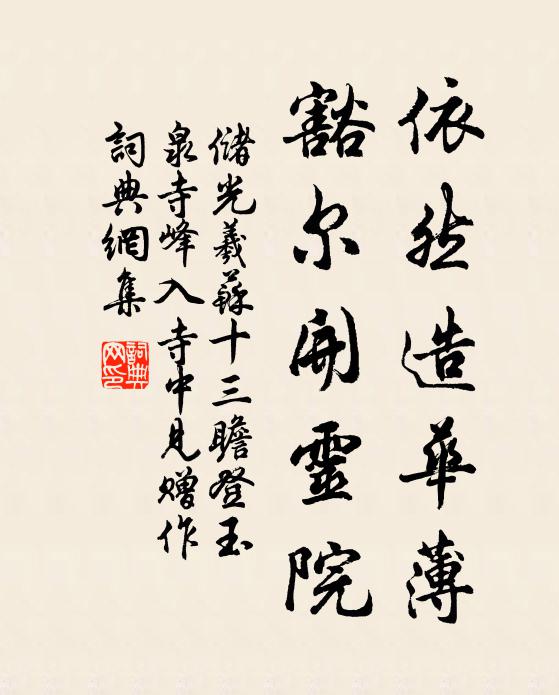 依然造華薄
豁尔開靈院
儲光羲蘇十三瞻登玉
泉寺峰入寺中見贈作
詞典網集
詞典
网印